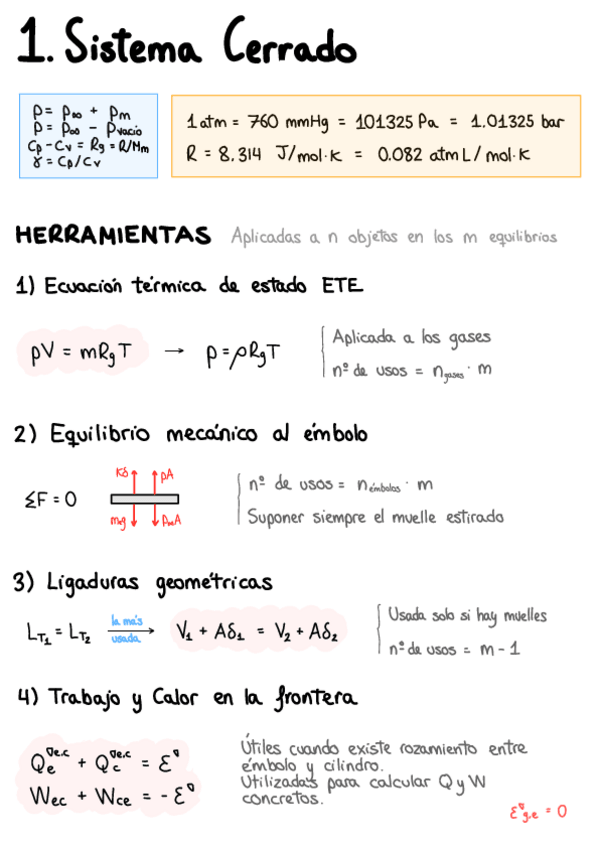 1. Sistema Cerrado
p = p∞ + pm
p = p∞ - pvacio
Cp - Cv = Rg = R/Mm
γ = Cp/Cv
1 atm = 760 mmHg = 101325 Pa = 1.01325 bar
R = 8.314 J/mol·K = 0.082 atm L/mol·K
HERRAMIENTAS Aplicadas a n objetos en los m equilibrios
1) Ecuación térmica de estado ETE
pV = mRgT → p = ρRgT
Aplicada a los gases
nº de usos = ngases · m
2) Equilibrio mecánico al émbolo
Kδ pA
ΣF = 0
mg p∞A
nº de usos = némbolos · m
Suponer siempre el muelle estirado
3) Ligaduras geométricas
LT1 = LT2 la más usada → V1 + Aδ1 = V2 + Aδ2
Usada solo si hay muelles
nº de usos = m - 1
4) Trabajo y Calor en la frontera
Qe∇e.c + Qc∇e.c = Ɛ∇
Wec + Wce = - Ɛ∇
Útiles cuando existe rozamiento entre
émbolo y cilindro.
Utilizadas para calcular Q y W
concretos.
Ɛ∇g.e = 0